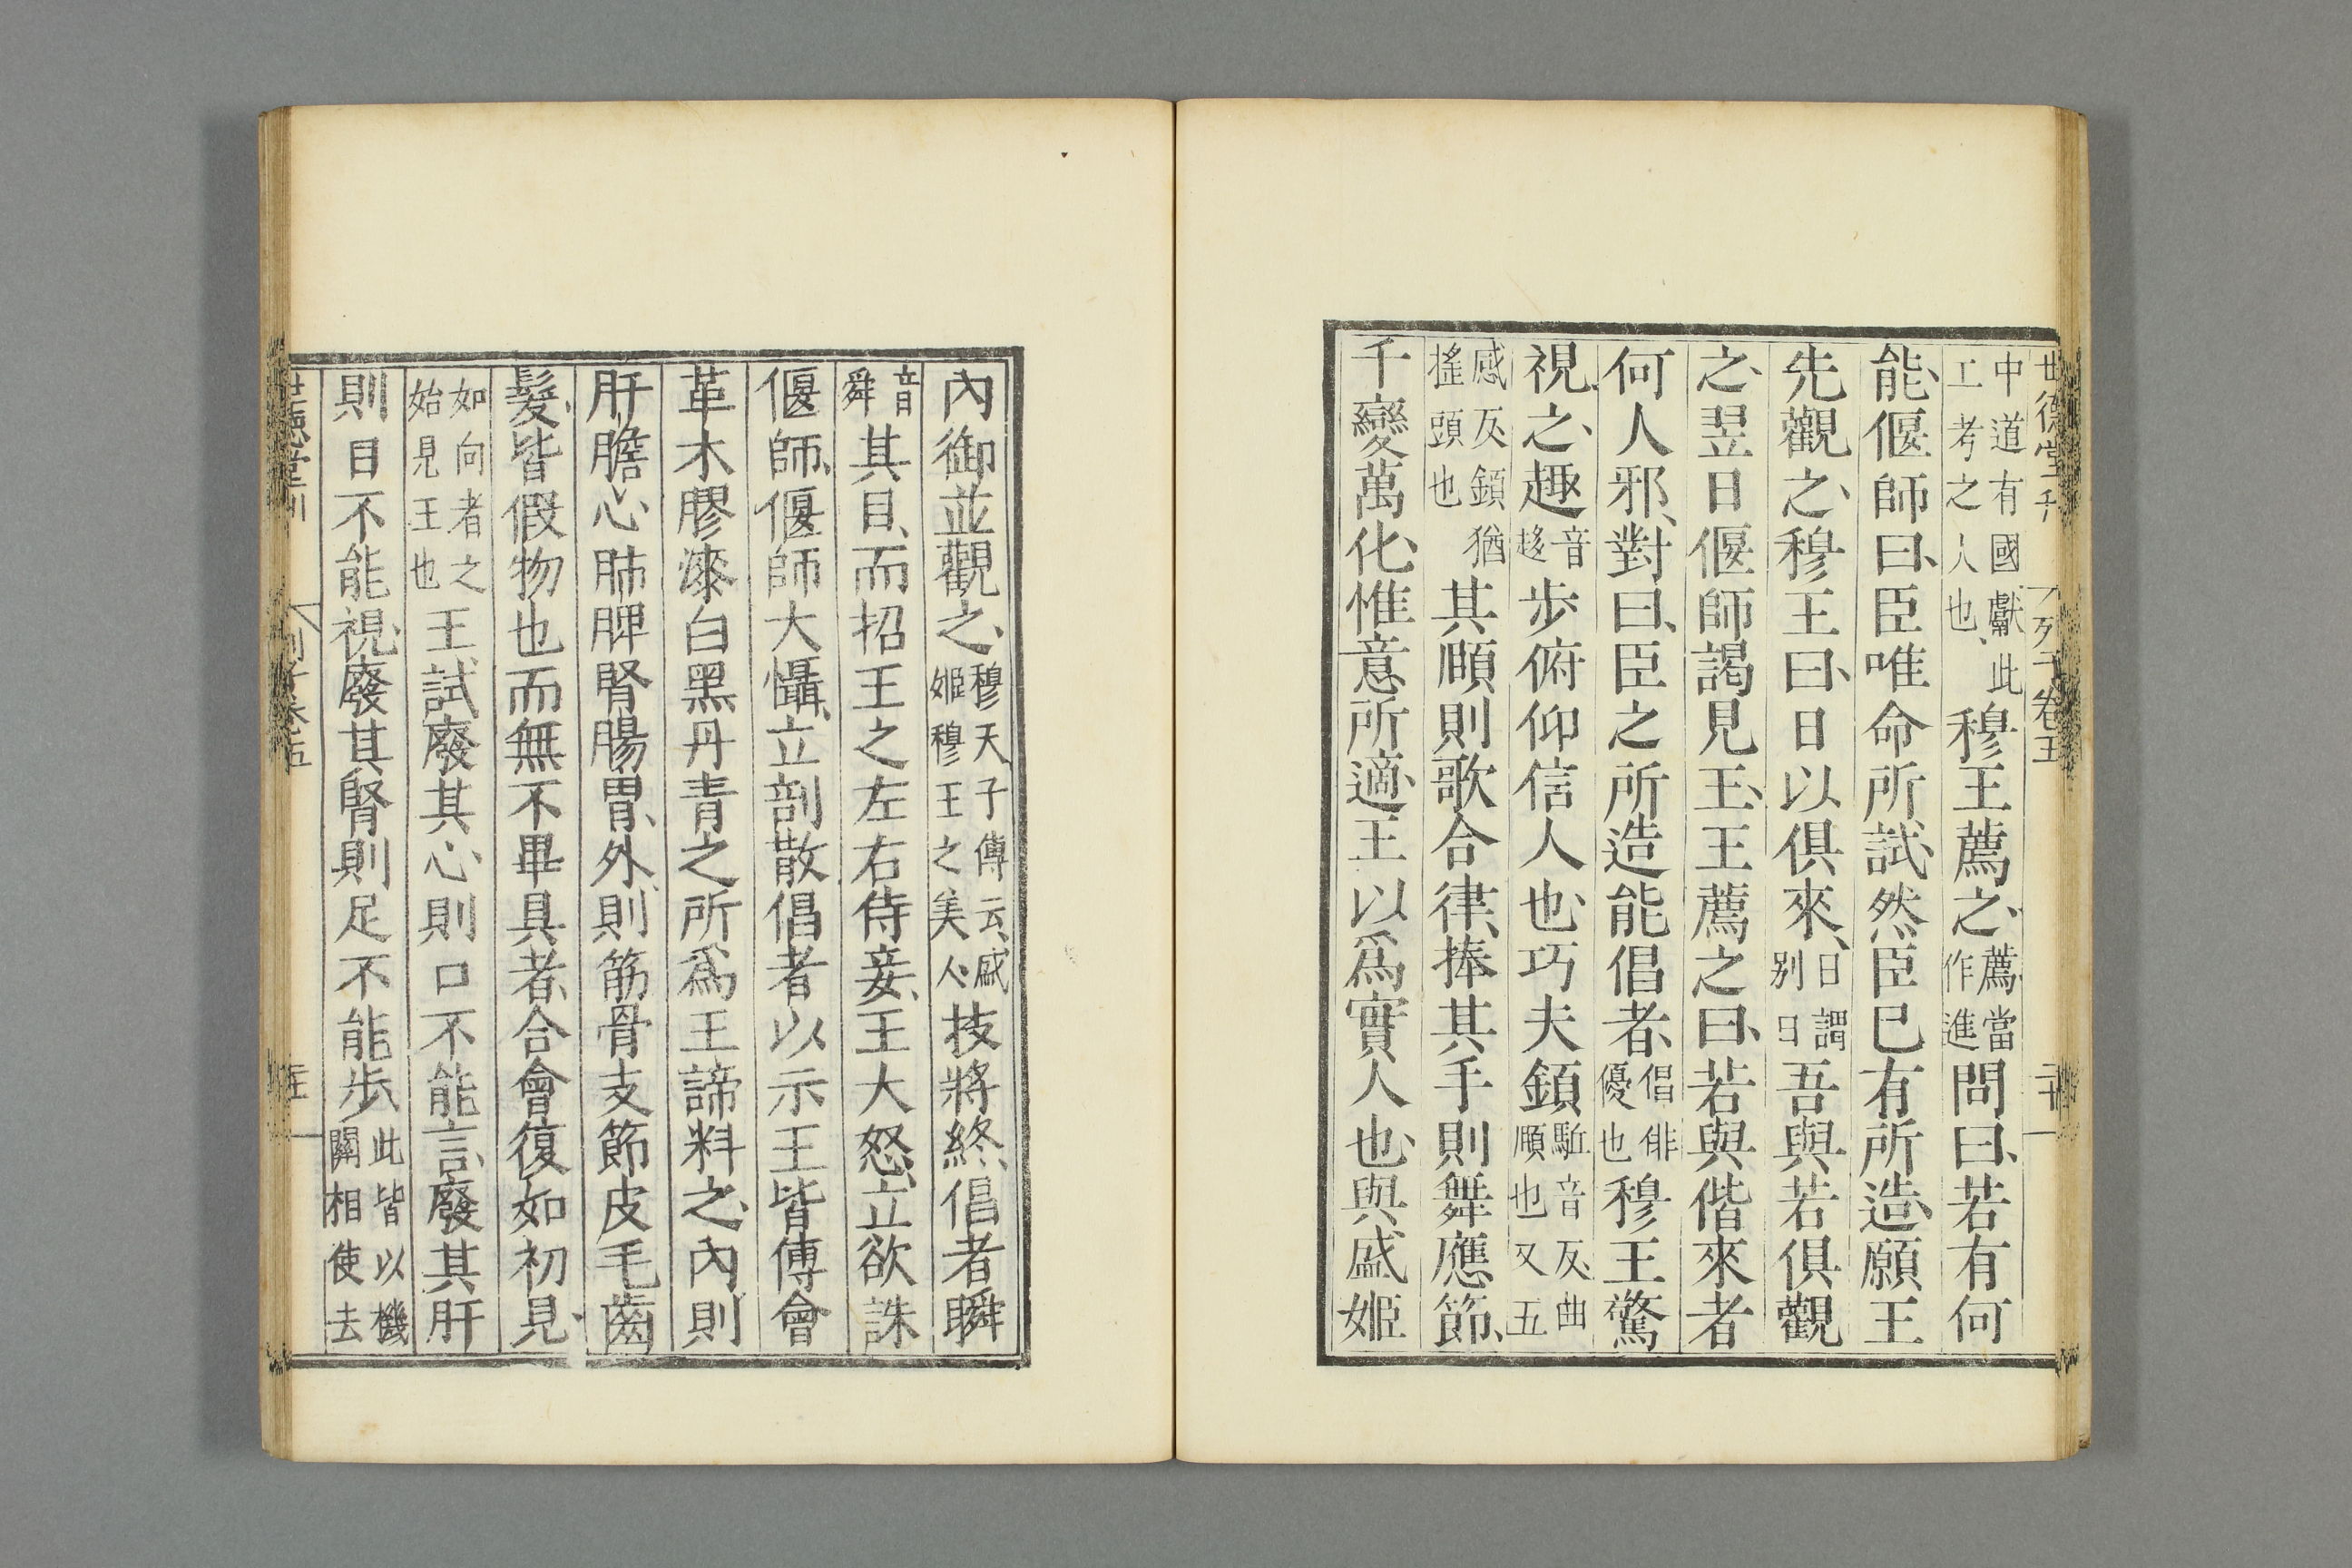 世德堂刊 列子卷五 二十
中道有國獻此工考之人也穆王薦之薦當作進問曰若有何
能偃師曰臣唯命所試然臣已有所造願王
先觀之穆王曰日以俱來日謂別日吾與若俱觀
之翌日偃師謁見王王薦之曰若與偕來者
何人邪對曰臣之所造能倡者倡俳優也穆王驚
視之趣音趍步俯仰信人也巧夫顉駈音反曲頤也又五
感反顉猶搖頭也其頤則歌合律捧其手則舞應節
千變萬化惟意所適王以爲實人也與盛姬
內御並觀之穆天子傳云盛姬穆王之美人技將終倡者瞬
音舜其目而招王之左右侍妾王大怒立欲誅
偃師偃師大懾立剖散倡者以示王皆傅會
革木膠漆白黑丹青之所爲王諦料之內則
肝膽心肺脾腎腸胃外則筋骨支節皮毛齒
髮皆假物也而無不畢具者合會復如初見
如向者之始見王也王試廢其心則口不能言廢其肝
則目不能視廢其腎則足不能步此皆以機關相使去
世德堂刊 列子卷五